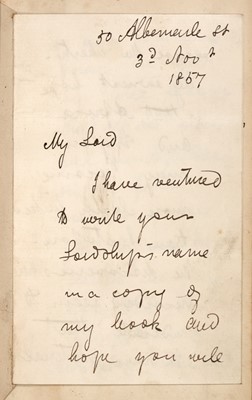 50 Albemarle St
3d Novr
1857
My Lord
I have ventured
to write your
Lordship's name
in a copy of
my book and
hope you will